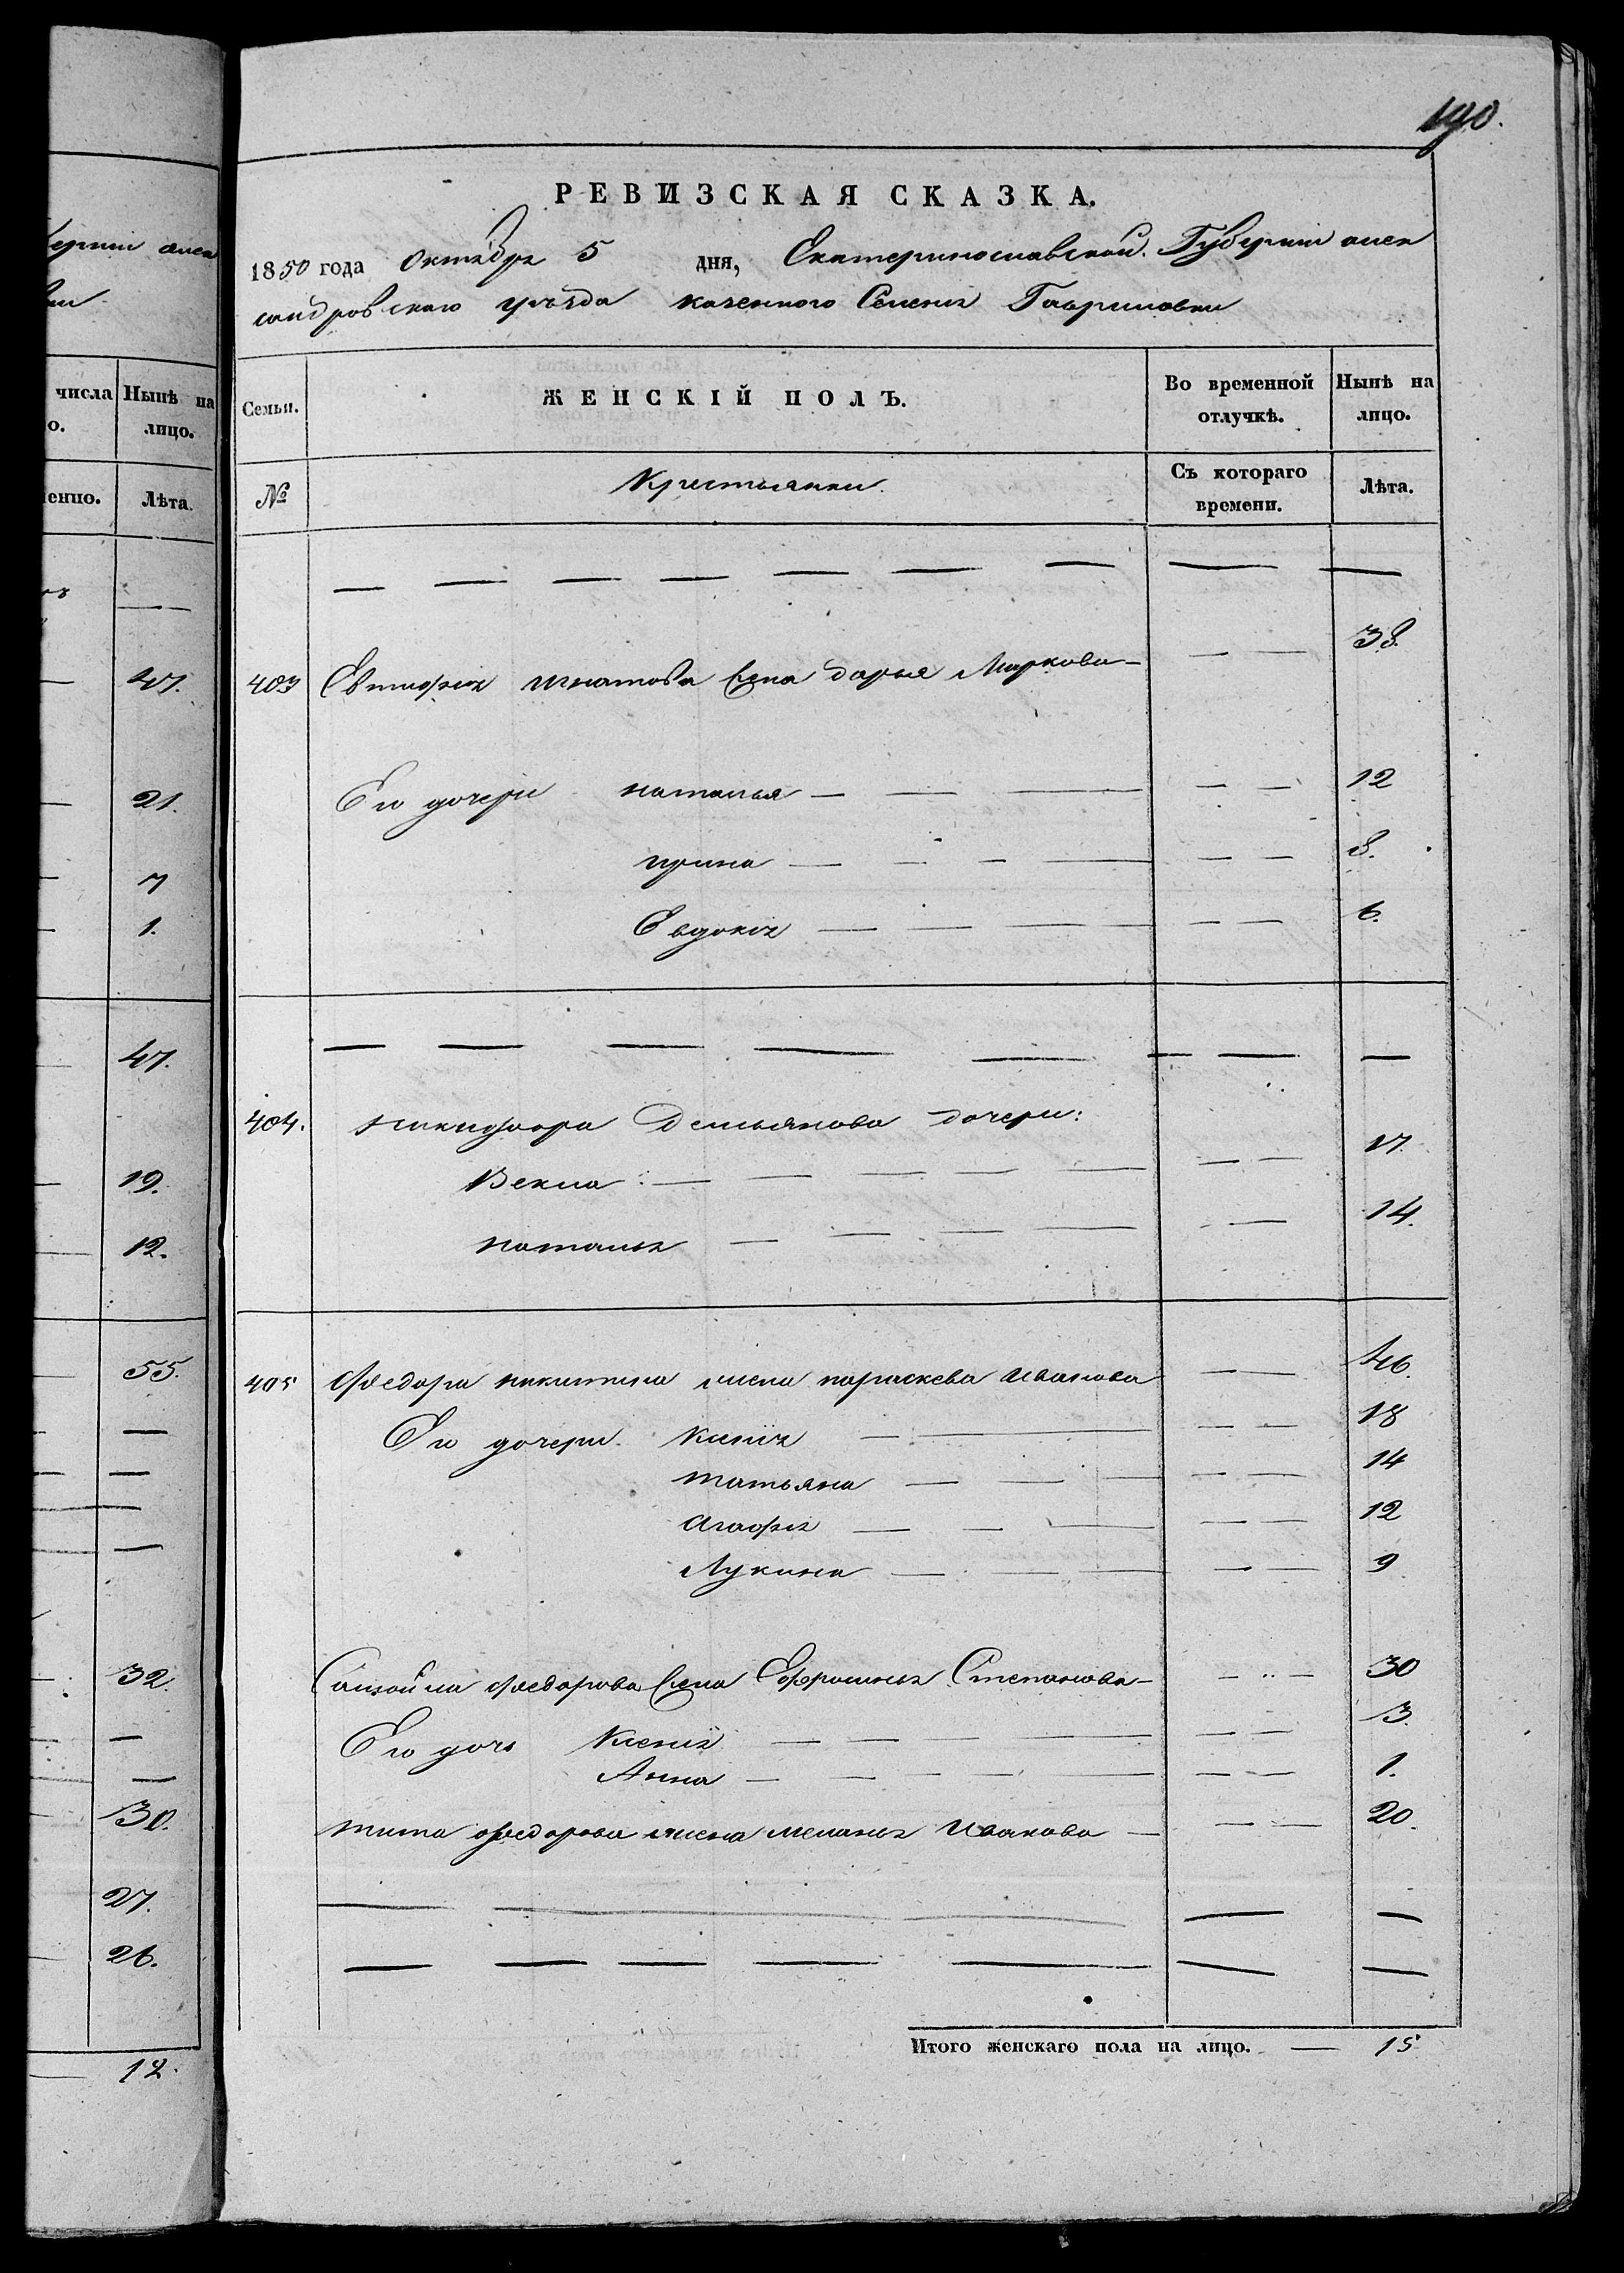 190.
РЕВИЗСКАЯ СКАЗКА.
1850 года Октября 5 дня, Екатеринославской Губерніи алек
сандровскаго уѣзда казенного Селенія Гавриловки
Семьи.
ЖЕНСКІЙ ПОЛЪ.
Во временной отлучкѣ.
Нынѣ на лицо.
№
Крестьянки.
Съ котораго времени.
Лѣта.
403 Евтифія игнатова жена дарья Маркова 38.
Его дочери наталья 12
ирина 8.
Евдокія 6.
404. никифора Демьянова дочери:
Векла 17.
наталья 14.
405 Федора никитина жена параскева иванова 46.
Его дочери Ксенія 18
татьяна 14
агафія 12
Лукина 9
Самойла федорова жена Ефросинья Степанова 30
Его дочь Ксенія 3.
Анна 1.
тита федорова жена меланья иванова 20.
Итого женскаго пола на лицо. 15
ерніи алек
числа
Нынѣ на лицо.
Лѣта.
47.
21.
7
1.
47.
19.
12.
55.
32.
30.
27.
26.
12.